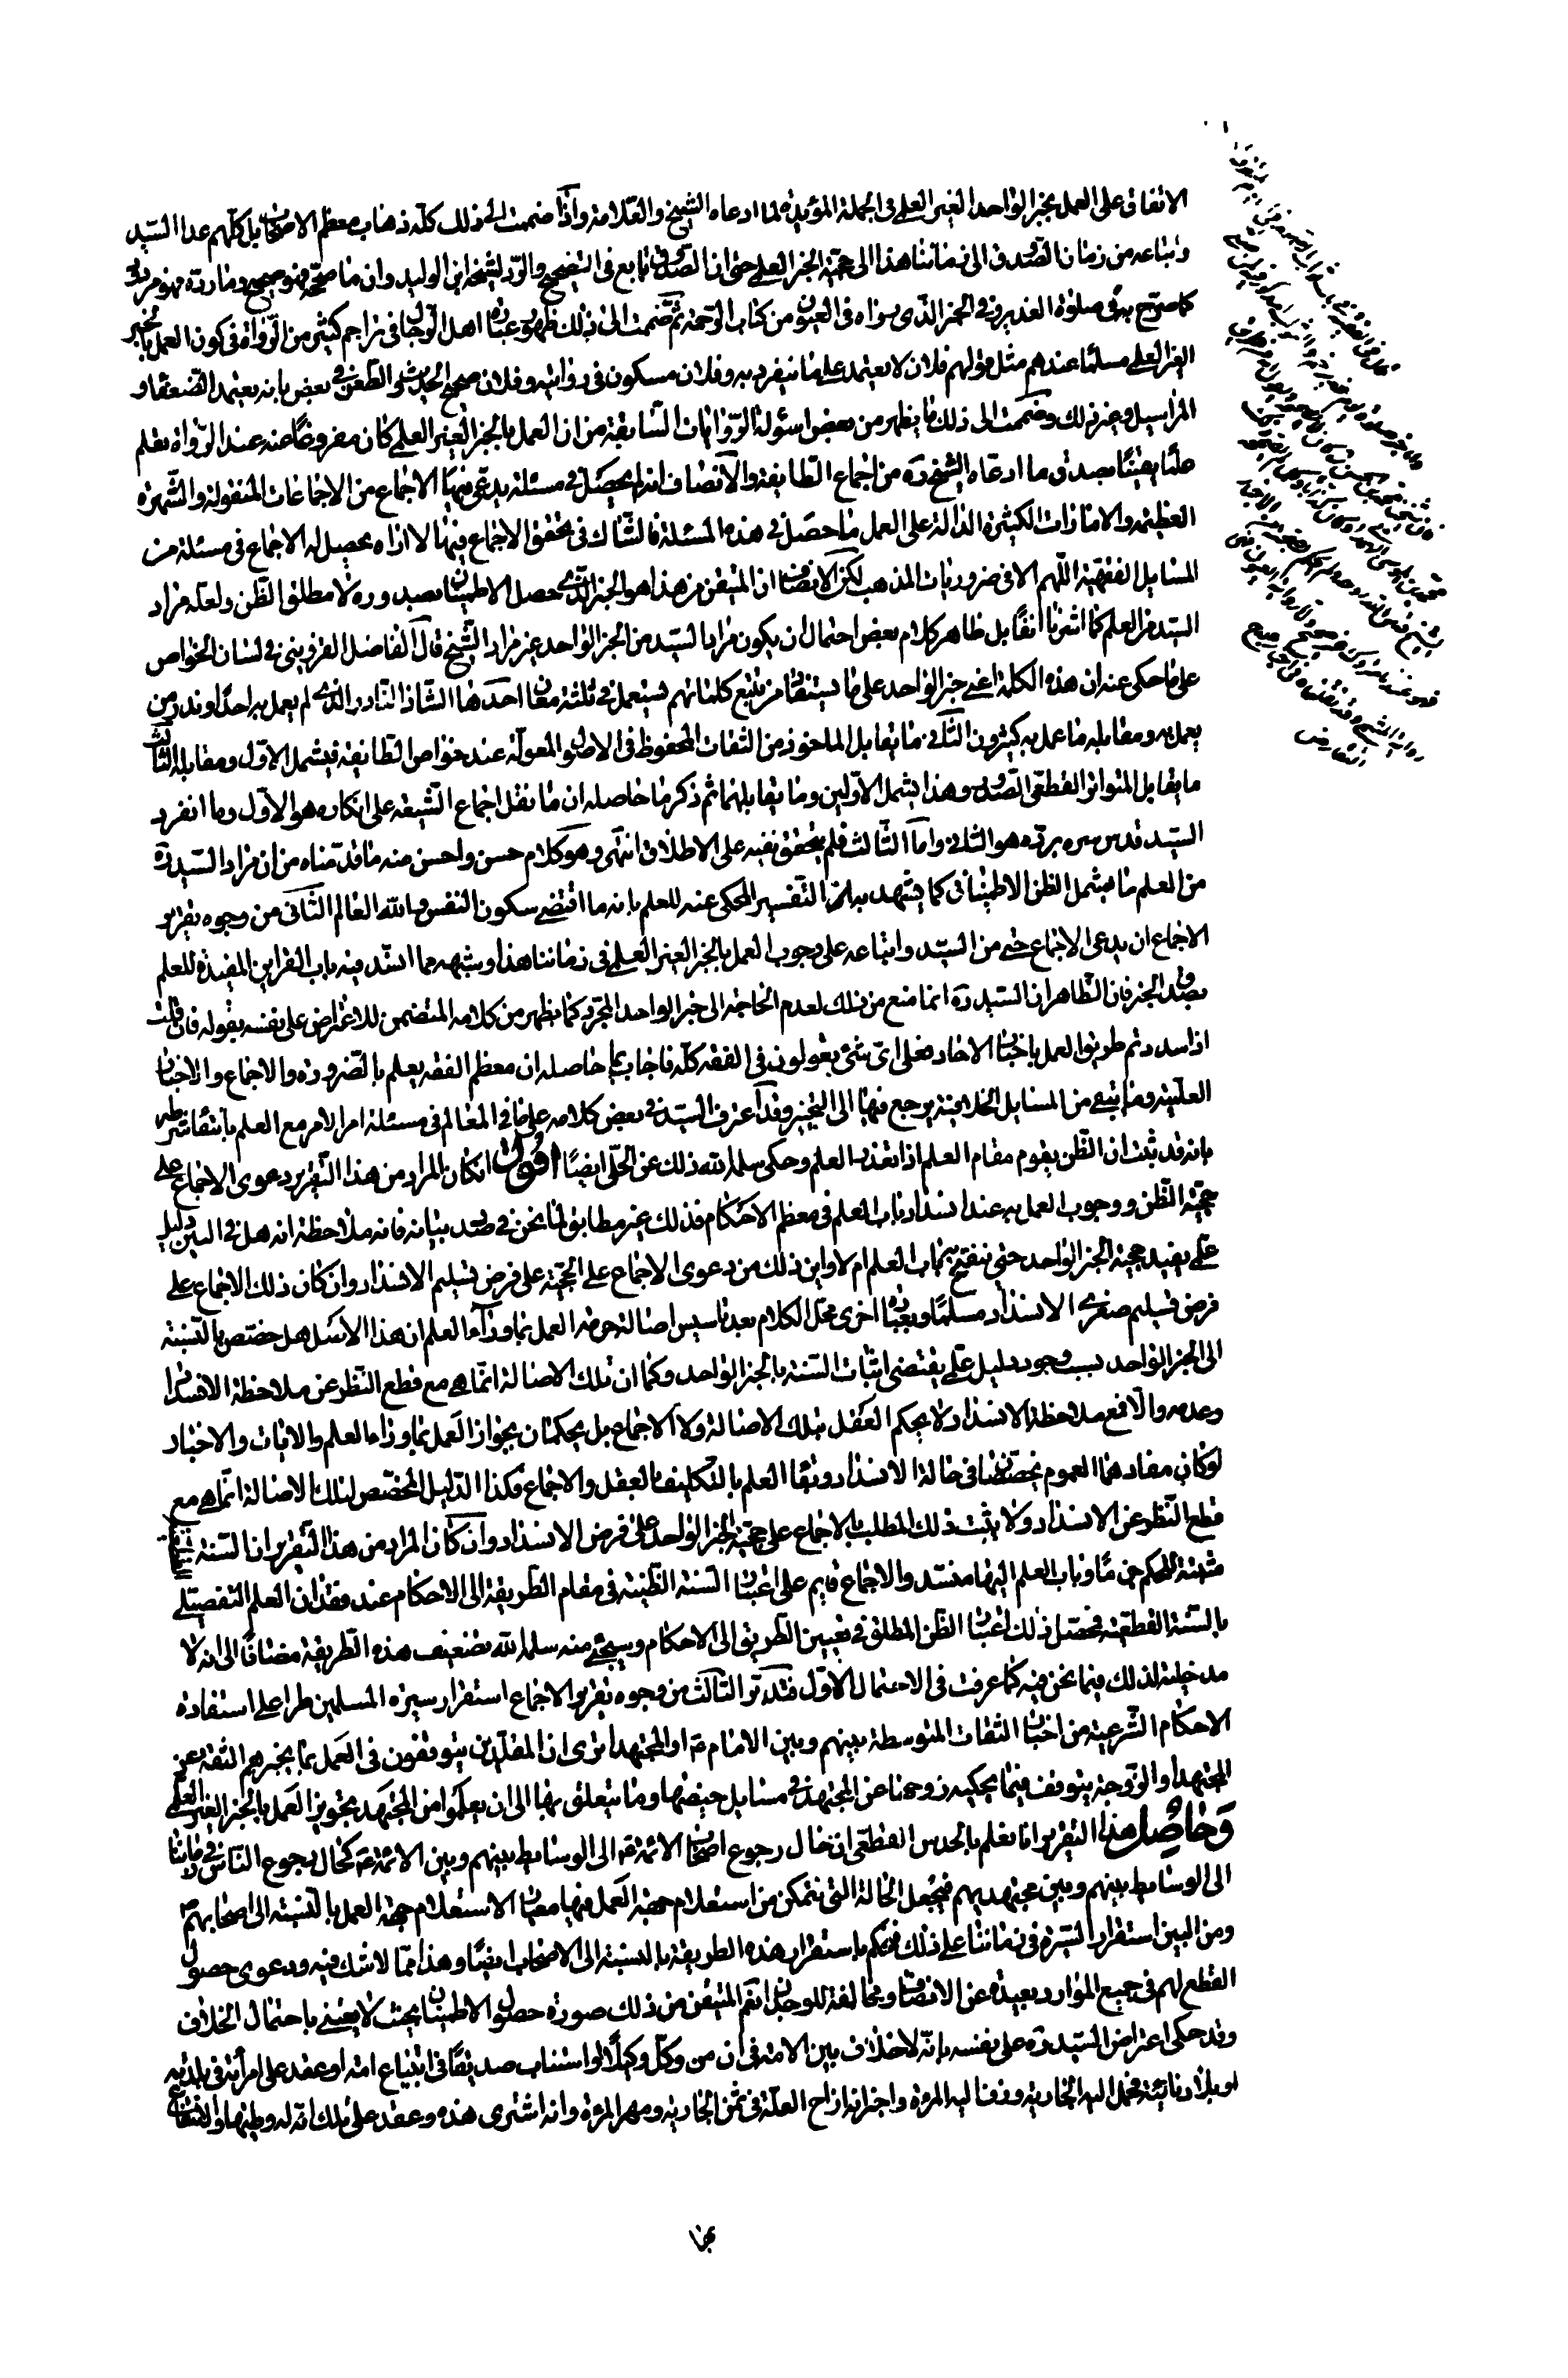 الاتفاق على العمل بخبر الواحد الغير العلمى فى الجملة المؤيدة لما ادعاه الشيخ والعلامة واذا ضممت الى ذلك كله ذهاب معظم الاصحاب بل كلهم عدا السيد
واتباعه من زمان الصدوق الى زماننا هذا الى حجية الخبر الغير العلمى حتى ان الصدوق تابع فى التصحيح والرد لشيخه ابن الوليد وان ما صححه فهو صحيح وما رده فهو مردود
كما صرح به فى صلوة الغدير وفى الخبر الذى رواه فى العيون من كتاب الرحمة ثم ضممت الى ذلك ظهور عبارة اهل الرجال فى تراجم كثير من الرواة فى كون العمل بالخبر
الغير العلمى مسلما عندهم مثل قولهم فلان لا يعتمد على ما ينفرد به وفلان مسكون فى روايته وفلان صحيح الحديث والطعن فى بعض بانه يعتمد الضعفاء و
المراسيل وغير ذلك وضممت الى ذلك ما يظهر من بعض اسئولة الروايات السابقة من ان العمل بالخبر الغير العلمى كان مفروغا عنه عند الرواة تعلم
علما يقينا صدق ما ادعاه الشيخ ره من اجماع الطايفة والانصاف انه لم يحصل فى مسئلة يدعى فيها الاجماع من الاجماعات المنقولة والشهرة
العظيمة والامارات الكثيرة الدالة على العمل ما حصل فى هذه المسئلة فالشاك فى تحقق الاجماع فيها لا اراه يحصل له الاجماع فى مسئلة من
المسايل الفقهية اللهم الا فى ضروريات المذهب لكن الانصاف ان المتيقن من هذا هو الخبر الذى حصل الاطمينان بصدوره لا مطلق الظن ولعله مراد
السيد من العلم كما اشرنا انفا بل ظاهر كلام بعض احتمال ان يكون مراد السيد من الخبر الواحد غير مراد الشيخ قال الفاضل القزوينى فى لسان الخواص
على ما حكى عنه ان هذه الكلمة اعنى خبر الواحد على ما يستفاد من تتبع كلماتهم تستعمل فى ثلثة معان احدها الشاذ النادر الذى لم يعمل به احد او ندر من
يعمل به ومقابله ما عمل به كثيرون الثانى ما يقابل الماخوذ من الثقات المحفوظ فى الاصول المعمولة عند خواص الطايفة فيشمل الاول ومقابله الثالث
ما يقابل المتواتر القطعى الصدور وهذا يشمل الاولين وما يقابلهما ثم ذكر ما حاصله ان ما نقل اجماع الشيعة على انكاره هو الاول وما انفرد
السيد قدس سره برده هو الثانى واما الثالث فلم يتحقق نفيه على الاطلاق انتهى وهو كلام حسن واحسن منه ما قدمناه من ان مراد السيد ره
من العلم ما يشمل الظن الاطمينانى كما يشهد به التفسير المحكى عنه للعلم بانه ما اقتضى سكون النفس والله العالم الثانى من وجوه تقرير
الاجماع ان يدعى الاجماع حتى من السيد واتباعه على وجوب العمل بالخبر الغير العلمى فى زماننا هذا وشبهه مما انسد فيه باب القراين المفيدة للعلم
بصدق الخبر فان الظاهر ان السيد ره انما منع من ذلك لعدم الحاجة الى خبر الواحد المجرد كما يظهر من كلامه المتضمن للاعتراض على نفسه بقوله فان قلت
اذا سددتم طريق العمل باخبار الاحاد فعلى اى شىء تعولون فى الفقه كله فاجاب بما حاصله ان معظم الفقه يعلم بالضرورة والاجماع والاخبار
العلمية وما يبقى من المسايل الخلافية يرجع فيها الى التخيير وقد اعترف السيد فى بعض كلامه على ما فى المعالم فى مسئلة امر الامر مع العلم بانتفاء شرطه
بانه قد ثبت ان الظن يقوم مقام العلم اذا تعذر العلم وحكى سلمه الله ذلك عن الحلى ايضا اقول ان كان المراد من هذا التقرير دعوى الاجماع على
حجية الظن ووجوب العمل به عند انسداد باب العلم فى معظم الاحكام فذلك غير مطابق لما نحن فى صدد بيانه فانه ملاحظة انه هل فى البين دليل
علمى يفيد حجية الخبر الواحد حتى ينفتح به باب العلم ام لا واين ذلك من دعوى الاجماع على الحجية على فرض تسليم الانسداد وان كان ذلك الاجماع على
فرض تسليم صغرى الانسداد مسلما وبعبارة اخرى محل الكلام بعد تاسيس اصالة حرمة العمل بما وراء العلم ان هذا الاصل هل خصص بالنسبة
الى الخبر الواحد بسبب وجود دليل علمى يقتضى اثبات السنة بالخبر الواحد وكما ان تلك الاصالة انما هى مع قطع النظر عن ملاحظة الانسداد
وعدمه والا فمع ملاحظة الانسداد لا يحكم العقل بتلك الاصالة ولا الاجماع بل يحكمان بجواز العمل بما وراء العلم والايات والاخبار
لو كان مفادهما العموم يخصصان فى حالة الانسداد وبقاء العلم بالتكليف بالعقل والاجماع فكذا الدليل المخصص لتلك الاصالة انما هى مع
قطع النظر عن الانسداد ولا يثبت ذلك المطلب بالاجماع على حجية الخبر الواحد على فرض الانسداد وان كان المراد من هذا التقرير ان السنة
مثبتة للحكم جزما وباب العلم اليها منسد والاجماع قايم على اعتبار السنة الظنية فى مقام الطريقة الى الاحكام عند فقدان العلم التفصيلى
بالسنة القطعية فمحصل ذلك اعتبار الظن المطلق فى تعيين الطريق الى الاحكام وسيجىء منه سلمه الله تضعيف هذه الطريقة مضافا الى انه لا
مدخلية لذلك فيما نحن فيه كما عرفت فى الاحتمال الاول فتدبر الثالث من وجوه تقرير الاجماع استقرار سيرة المسلمين طرا على استفادة
الاحكام الشرعية من اخبار الثقات المتوسطة بينهم وبين الامام ع او المجتهد اترى ان المقلدين يتوقفون فى العمل بما يخبرهم الثقة عن
المجتهد او الزوجة يتوقف فيما يحكيه زوجها عن المجتهد فى مسايل حيضها وما يتعلق بها الى ان يعلموا من المجتهد تجويز العمل بالخبر الغير العلمى
وحاصل هذا التقرير انا نعلم بالحدس القطعى ان حال رجوع اصحاب الائمة ع الى الوسايط بينهم وبين الائمة ع كحال رجوع الناس فى زماننا
الى الوسايط بينهم وبين مجتهديهم فيجعل الحالة التى نتمكن من استعلام جهة العمل فيها معيار الاستعلام جهة العمل بالنسبة الى اصحابهم ع
ومن البين استقرار السيرة فى زماننا على ذلك فنحكم باستقرار هذه الطريقة بالنسبة الى الاصحاب يقينا وهذا مما لا شك فيه ودعوى حصول
القطع لهم فى جميع الموارد بعيدة عن الانصاف ومخالفة للوجدان نعم المتيقن من ذلك صورة حصول الاطمينان بحيث لا يعتنى باحتمال الخلاف
وقد حكى اعتراض السيد ره على نفسه بانه لا خلاف بين الامة فى ان من وكل وكيلا او استناب صديقا فى ابتياع امة او عقد على امرأة فى بلدته
او بلاد نائية فحمل اليه الجارية وزف اليه المرئة واخبر انه ازاح العلة فى ثمن الجارية ومهر المرئة وانه اشترى هذه وعقد على تلك ان له وطئها والانتفاع
بها